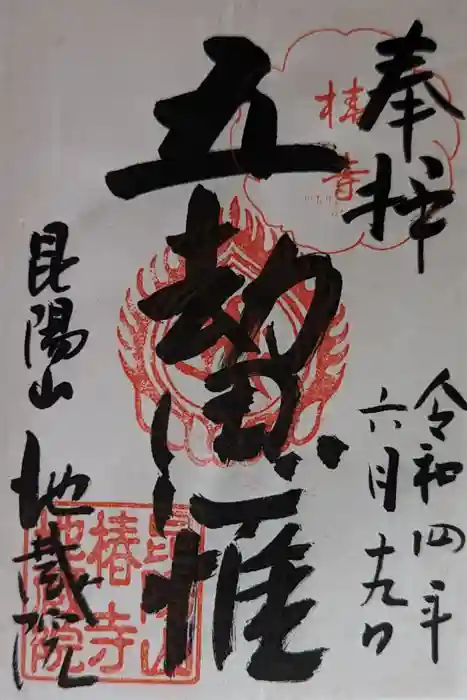 奉拝
椿寺
令和四年
六月十九日
五劫思惟
昆陽山
地蔵院
昆陽山
椿寺
地蔵院